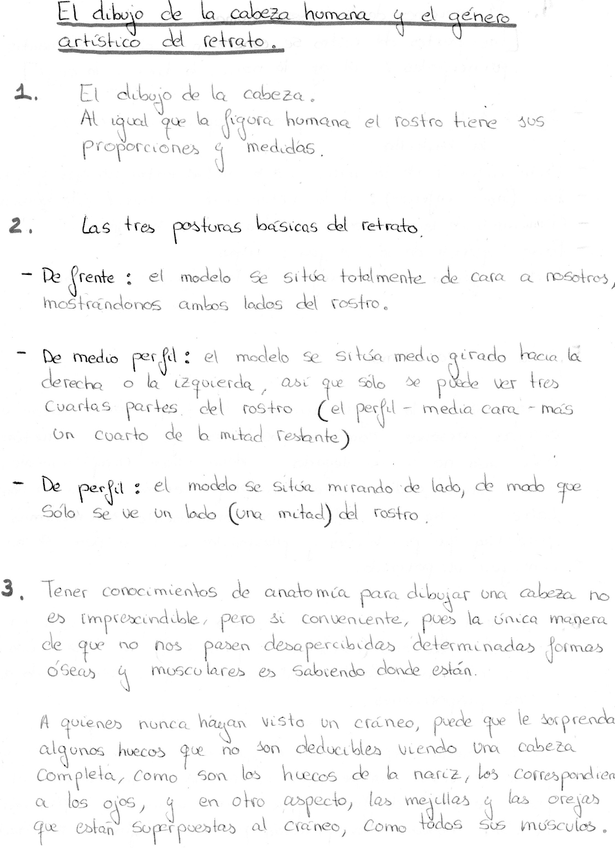 El dibujo de la cabeza humana y el género
artístico del retrato.
1. El dibujo de la cabeza.
Al igual que la figura humana el rostro tiene sus
proporciones y medidas.
2. Las tres posturas básicas del retrato.
- De frente: el modelo se sitúa totalmente de cara a nosotros,
mostrándonos ambos lados del rostro.
- De medio perfil: el modelo se sitúa medio girado hacia la
derecha o la izquierda, así que sólo se puede ver tres
cuartas partes del rostro (el perfil - media cara - más
un cuarto de la mitad restante)
- De perfil: el modelo se sitúa mirando de lado, de modo que
sólo se ve un lado (una mitad) del rostro.
3. Tener conocimientos de anatomía para dibujar una cabeza no
es imprescindible, pero si conveniente, pues la única manera
de que no nos pasen desapercibidas determinadas formas
óseas y musculares es sabiendo donde están.
A quienes nunca hayan visto un cráneo, puede que le sorprenda
algunos huecos que no son deducibles viendo una cabeza
completa, como son los huecos de la nariz, los correspondien
a los ojos, y en otro aspecto, las mejillas y las orejas
que están superpuestas al cráneo, como todos sus músculos.